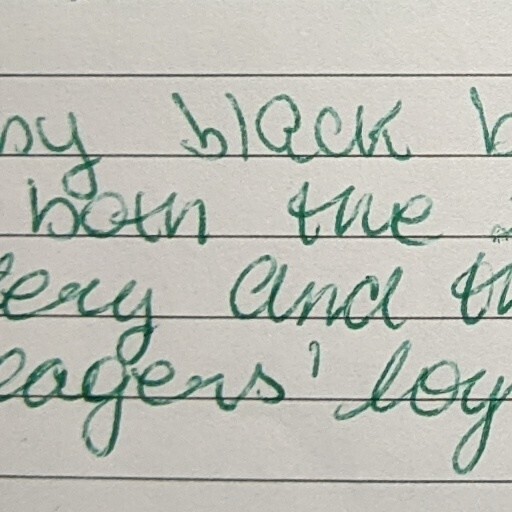 by black b
both the
tery and th
eagers' loy